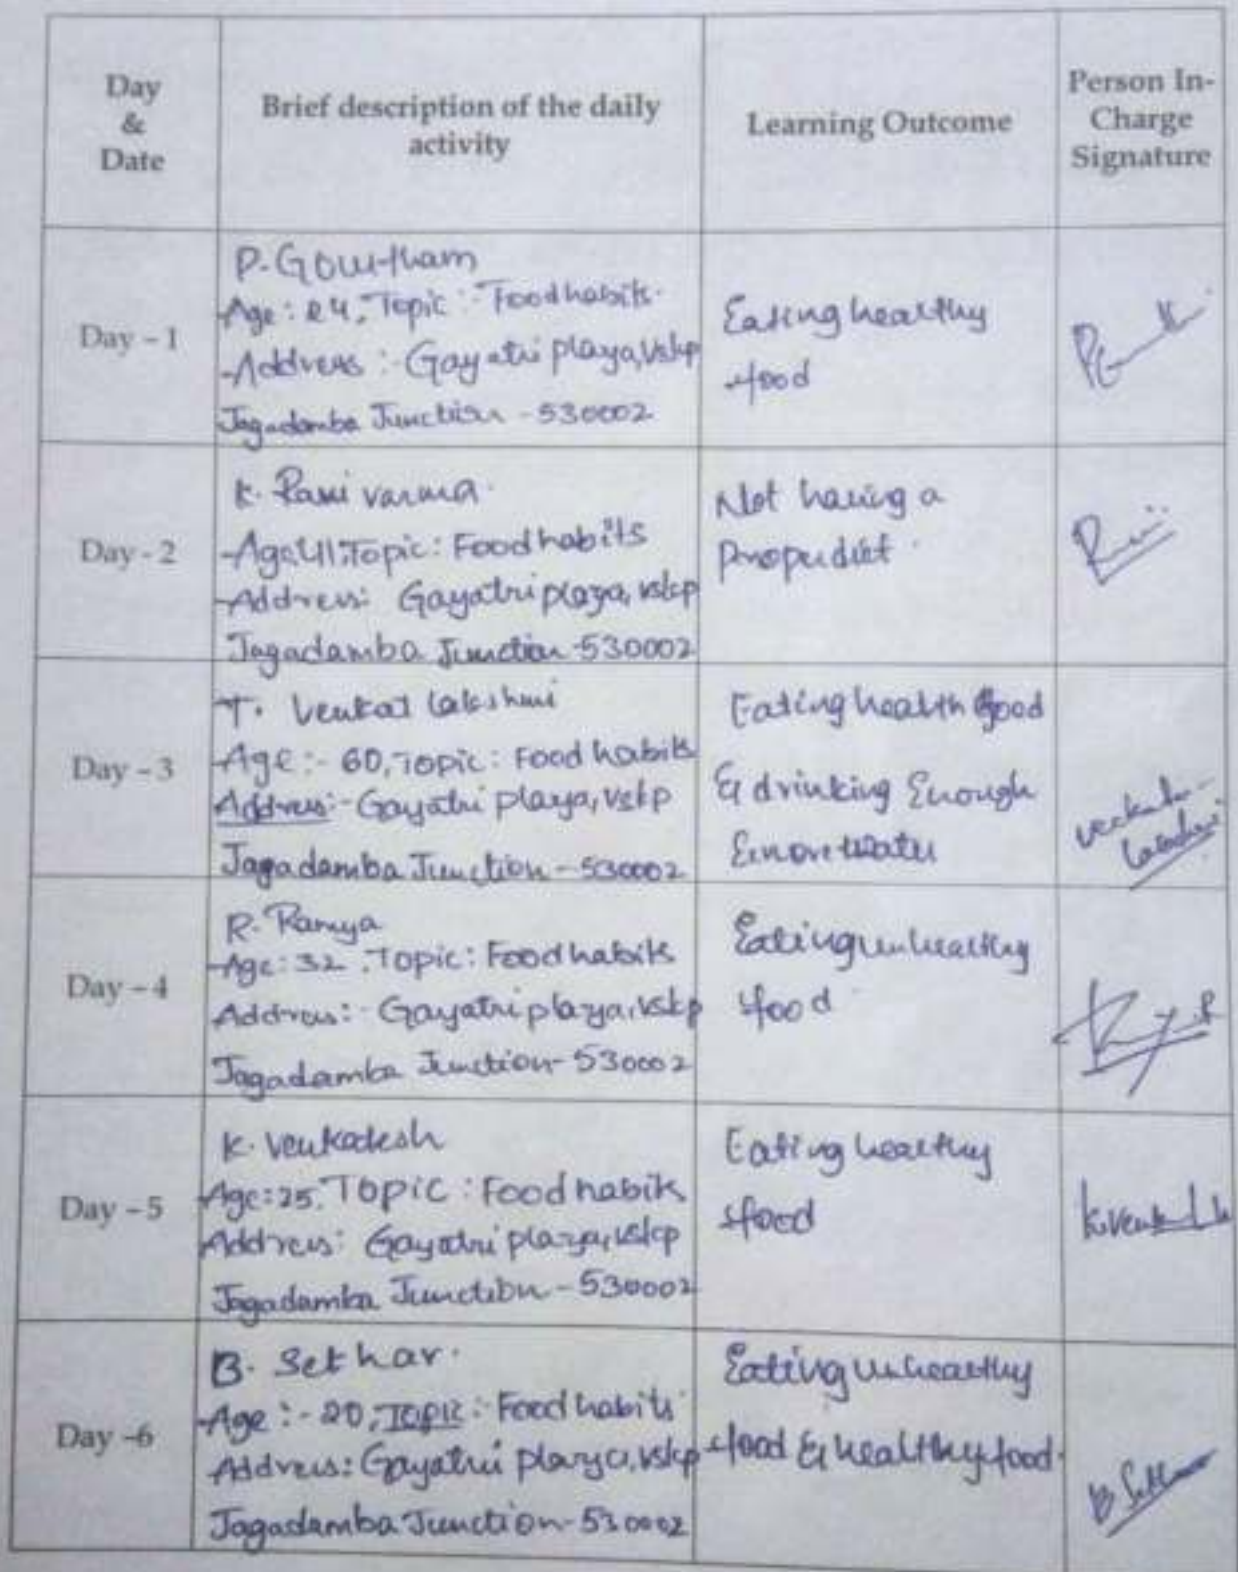 Day
&
Date
Brief description of the daily
activity
Learning Outcome
Person In-
Charge
Signature
Day - 1
P. Gowtham
Age: 24, Topic: Food habits.
Address: Gayatri plaza, Vskp
Jagadamba Junction - 530002
Eating healthy
food
Day - 2
K. Ravi varma.
Age: 41, Topic: Food habits
Address: Gayatri plaza, Vskp
Jagadamba Junction - 530002
Not having a
proper diet.
Day - 3
T. Venkat lakshmi
Age:- 60, Topic: Food habits
Address:- Gayatri plaza, Vskp
Jagadamba Junction - 530002
Eating health food
& drinking Enough
water
Day - 4
R. Ramya
Age: 32, Topic: Food habits
Address:- Gayatri plaza, Vskp
Jagadamba Junction - 530002
Eating unhealthy
food
Day - 5
K. Venkatesh
Age: 25, Topic: Food habits
Address: Gayatri plaza, Vskp
Jagadamba Junction - 530002
Eating healthy
food
Day -6
B. Sekhar.
Age:- 20, Topic: Food habits
Address: Gayatri plaza, Vskp
Jagadamba Junction - 530002
Eating unhealthy
food & healthy food.